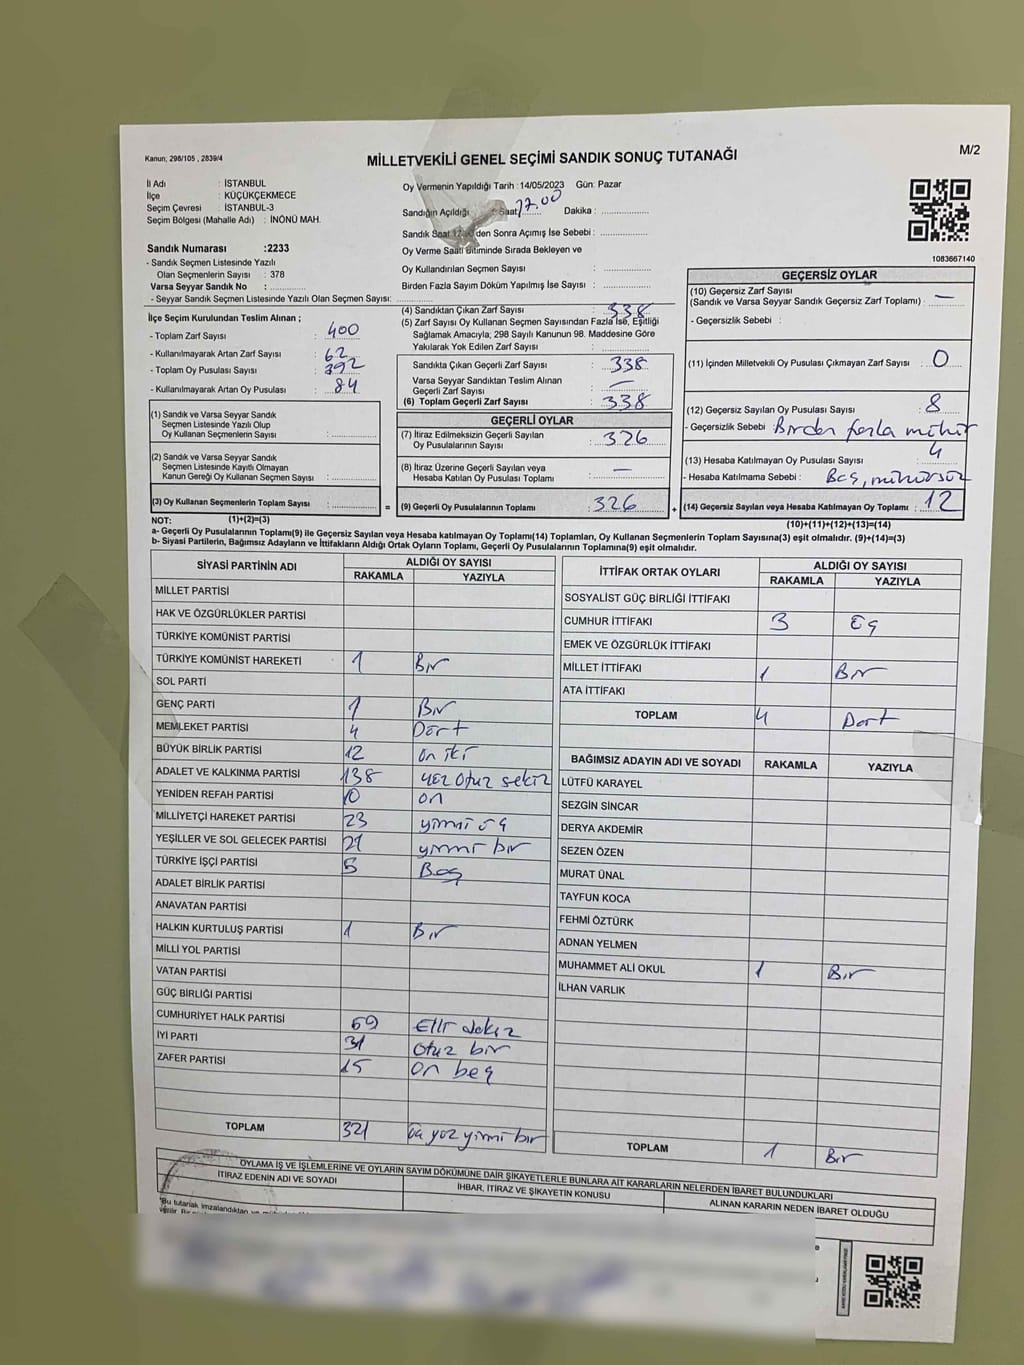 Kanun; 298/105 , 2839/4
MİLLETVEKİLİ GENEL SEÇİMİ SANDIK SONUÇ TUTANAĞI
M/2
İl Adı : İSTANBUL
İlçe : KÜÇÜKÇEKMECE
Seçim Çevresi : İSTANBUL-3
Seçim Bölgesi (Mahalle Adı) : İNÖNÜ MAH.
Sandık Numarası :2233
- Sandık Seçmen Listesinde Yazılı
Olan Seçmenlerin Sayısı : 378
Varsa Seyyar Sandık No :
- Seyyar Sandık Seçmen Listesinde Yazılı Olan Seçmen Sayısı:
Oy Vermenin Yapıldığı Tarih :14/05/2023 Gün: Pazar
Sandığın Açıldığı : Saat 17.00 Dakika :
Sandık Saat 'den Sonra Açımış İse Sebebi :
Oy Verme Saati Bitiminde Sırada Bekleyen ve
Oy Kullandırılan Seçmen Sayısı :
Birden Fazla Sayım Döküm Yapılmış İse Sayısı :
1083667140
İlçe Seçim Kurulundan Teslim Alınan ;
- Toplam Zarf Sayısı : 400
- Kullanılmayarak Artan Zarf Sayısı : 62
- Toplam Oy Pusulası Sayısı : 392
- Kullanılmayarak Artan Oy Pusulası : 84
(1) Sandık ve Varsa Seyyar Sandık
Seçmen Listesinde Yazılı Olup
Oy Kullanan Seçmenlerin Sayısı :
(2) Sandık ve Varsa Seyyar Sandık
Seçmen Listesinde Kayıtlı Olmayan
Kanun Gereği Oy Kullanan Seçmen Sayısı :
(3) Oy Kullanan Seçmenlerin Toplam Sayısı :
(1)+(2)=(3)
(4) Sandıktan Çıkan Zarf Sayısı : 338
(5) Zarf Sayısı Oy Kullanan Seçmen Sayısından Fazla İse, Eşitliği
Sağlamak Amacıyla; 298 Sayılı Kanunun 98. Maddesine Göre
Yakılarak Yok Edilen Zarf Sayısı :
Sandıkta Çıkan Geçerli Zarf Sayısı : 338
Varsa Seyyar Sandıktan Teslim Alınan
Geçerli Zarf Sayısı : —
(6) Toplam Geçerli Zarf Sayısı : 338
GEÇERLİ OYLAR
(7) İtiraz Edilmeksizin Geçerli Sayılan
Oy Pusulalarının Sayısı : 326
(8) İtiraz Üzerine Geçerli Sayılan veya
Hesaba Katılan Oy Pusulası Toplamı : —
= (9) Geçerli Oy Pusulalarının Toplamı : 326 +
GEÇERSİZ OYLAR
(10) Geçersiz Zarf Sayısı
(Sandık ve Varsa Seyyar Sandık Geçersiz Zarf Toplamı) : —
- Geçersizlik Sebebi :
(11) İçinden Milletvekili Oy Pusulası Çıkmayan Zarf Sayısı : 0
(12) Geçersiz Sayılan Oy Pusulası Sayısı : 8
- Geçersizlik Sebebi : Birden fazla mühür
(13) Hesaba Katılmayan Oy Pusulası Sayısı : 4
- Hesaba Katılmama Sebebi : Boş, mühürsüz
(14) Geçersiz Sayılan veya Hesaba Katılmayan Oy Toplamı : 12
(10)+(11)+(12)+(13)=(14)
NOT:
a- Geçerli Oy Pusulalarının Toplamı(9) ile Geçersiz Sayılan veya Hesaba katılmayan Oy Toplamı(14) Toplamları, Oy Kullanan Seçmenlerin Toplam Sayısına(3) eşit olmalıdır. (9)+(14)=(3)
b- Siyasi Partilerin, Bağımsız Adayların ve İttifakların Aldığı Ortak Oyların Toplamı, Geçerli Oy Pusulalarının Toplamına(9) eşit olmalıdır.
SİYASİ PARTİNİN ADI ALDIĞI OY SAYISI
RAKAMLA YAZIYLA
MİLLET PARTİSİ
HAK VE ÖZGÜRLÜKLER PARTİSİ
TÜRKİYE KOMÜNİST PARTİSİ
TÜRKİYE KOMÜNİST HAREKETİ 1 Bir
SOL PARTİ
GENÇ PARTİ 1 Bir
MEMLEKET PARTİSİ 4 Dört
BÜYÜK BİRLİK PARTİSİ 12 on iki
ADALET VE KALKINMA PARTİSİ 138 yüz otuz sekiz
YENİDEN REFAH PARTİSİ 10 on
MİLLİYETÇİ HAREKET PARTİSİ 23 yirmi üç
YEŞİLLER VE SOL GELECEK PARTİSİ 21 yirmi bir
TÜRKİYE İŞÇİ PARTİSİ 5 Beş
ADALET BİRLİK PARTİSİ
ANAVATAN PARTİSİ
HALKIN KURTULUŞ PARTİSİ 1 Bir
MİLLİ YOL PARTİSİ
VATAN PARTİSİ
GÜÇ BİRLİĞİ PARTİSİ
CUMHURİYET HALK PARTİSİ 59 Elli dokuz
İYİ PARTİ 31 otuz bir
ZAFER PARTİSİ 15 on beş
TOPLAM 321 üç yüz yirmi bir
İTTİFAK ORTAK OYLARI ALDIĞI OY SAYISI
RAKAMLA YAZIYLA
SOSYALİST GÜÇ BİRLİĞİ İTTİFAKI
CUMHUR İTTİFAKI 3 üç
EMEK VE ÖZGÜRLÜK İTTİFAKI
MİLLET İTTİFAKI 1 Bir
ATA İTTİFAKI
TOPLAM 4 Dört
BAĞIMSIZ ADAYIN ADI VE SOYADI RAKAMLA YAZIYLA
LÜTFÜ KARAYEL
SEZGİN SİNCAR
DERYA AKDEMİR
SEZEN ÖZEN
MURAT ÜNAL
TAYFUN KOCA
FEHMİ ÖZTÜRK
ADNAN YELMEN
MUHAMMET ALİ OKUL 1 Bir
İLHAN VARLIK
TOPLAM 1 Bir
OYLAMA İŞ VE İŞLEMLERİNE VE OYLARIN SAYIM DÖKÜMÜNE DAİR ŞİKAYETLERLE BUNLARA AİT KARARLARIN NELERDEN İBARET BULUNDUKLARI
İTİRAZ EDENİN ADI VE SOYADI İHBAR, İTİRAZ VE ŞİKAYETİN KONUSU ALINAN KARARIN NEDEN İBARET OLDUĞU
"Bu tutanak imzalandıktan